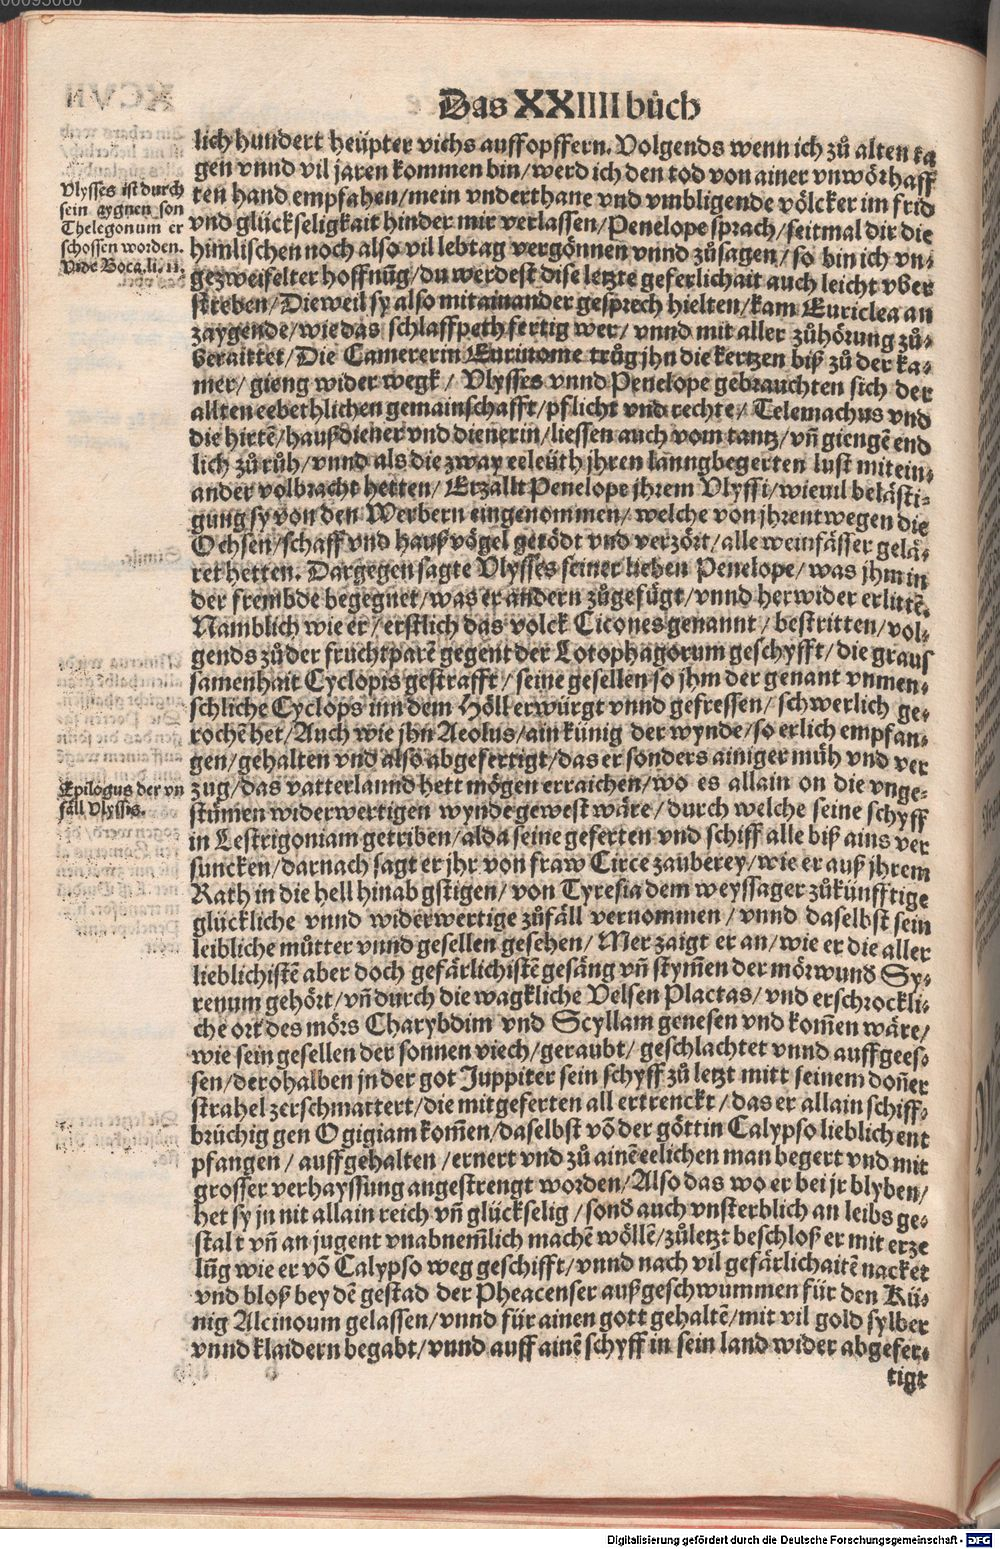 Das XXIIII bůch
lich hundert heüpter vichs auffopffern. Volgends wenn ich zů alten ta
gen vnnd vil jaren kommen bin/ werd ich den tod von ainer vnwörhaff
ten hand empfahen/ mein vnderthane vnd vmbligende völcker im frid
vnd glückseligkait hinder mir verlassen/ Penelope sprach/ seitmal dir die
himlischen noch also vil lebtag vergönnen vnnd zůsagen/ so bin ich vn⸗
gezweifelter hoffnūg/ du werdest dise letzte geferlichait auch leicht vber
streben/ Dieweil sy also mitainander gesprech hielten/ kam Euriclea an
zaygende/ wie das schlaffpeth fertig wer/ vnnd mit aller zůhörung zů⸗
beraittet/ Die Camererin Eurinome trůg jhn die kertzen biß zů der ka⸗
mer/ gieng wider wegk/ Vlysses vnnd Penelope gebrauchten sich der
allten eebethlichen gemainschafft/ pflicht vnd rechte/ Telemachus vnd
die hirtē/ haußdiener vnd dienerin/ liessen auch vom tantz/ vñ giengē end
lich zů růh/ vnnd als die zway eeleüth jhren lanngbegerten lust mitein⸗
ander volbracht hetten/ Erzallt Penelope jhrem Vlyssi/ wieuil belästi⸗
gung sy von den Werbern eingenommen/ welche von jhrent wegen die
Ochsen/ schaff vnd haußvögel getödt vnd verzört/ alle weinfässer gelä⸗
ret hetten. Dargegen sagte Vlysses seiner lieben Penelope/ was jhm in
der frembde begegnet/ was er andern zůgefügt/ vnnd herwider erlittē.
Namblich wie er/ erstlich das volck Cicones genannt/ bestritten/ vol⸗
gends zů der fruchtparē gegent der Lotophagorum geschyfft/ die graus
samenhait Cyclopis gestrafft/ seine gesellen so jhm der genant vnmen⸗
schliche Cyclops inn dem Höll erwürgt vnnd gefressen/ schwerlich ge⸗
rochē het/ Auch wie jhn Aeolus/ ain künig der wynde/ so erlich empfan⸗
gen/ gehalten vnd also abgefertigt/ das er sonders ainiger müh vnd ver
zug/ das vatterlannd hett mögen erraichen/ wo es allain on die vnge⸗
stümen widerwertigen wynde gewest wäre/ durch welche seine schyff
in Lestrigoniam getriben/ alda seine geferten vnd schiff alle biß ains ver
suncken/ darnach sagt er jhr von fraw Circe zauberey/ wie er auß jhrem
Rath in die hell hinab gstigen/ von Tyresia dem weyssager zůkünfftige
glückliche vnnd widerwertige zůfäll vernommen/ vnnd daselbst sein
leibliche můtter vnnd gesellen gesehen/ Mer zaigt er an/ wie er die aller
lieblichistē aber doch gefärlichistē gesäng vñ stym̄en der mörwund Sy⸗
renum gehört/ vñ durch die wagkliche Velsen Plactas/ vnd erschrockli⸗
che ort des mörs Charybdim vnd Scyllam genesen vnd kom̄en wäre/
wie sein gesellen der sonnen viech/ geraubt/ geschlachtet vnnd auffgees⸗
sen/ derohalben jn der got Juppiter sein schyff zů letzt mitt seinem don̄er
strahel zerschmattert/ die mitgeferten all ertrenckt/ das er allain schiff⸗
brüchig gen Ogigiam kom̄en/ daselbst vō der göttin Calypso lieblich ent
pfangen/ auffgehalten/ ernert vnd zů ainē eelichen man begert vnd mit
grosser verhayssung angestrengt worden/ Also das wo er bei jr blyben/
het sy jn nit allain reich vñ glückselig/ sond auch vnsterblich an leibs ge⸗
stalt vñ an jugent vnabnem̄lich machē wöllē/ zůletzt beschloß er mit erze
lūg wie er vō Calypso weg geschifft/ vnnd nach vil gefärlichaitē nacket
vnd bloß bey dē gestad der Pheacenser außgeschwummen für den Kü⸗
nig Alcinoum gelassen/ vnnd für ainen gott gehaltē/ mit vil gold sylber
vnnd klaidern begabt/ vnnd auff ainē schyff in sein land wider abgefer⸗
tigt
Vlysses ist durch
sein aygnen son
Thelegonum er
schossen worden.
Vide Boca. li. 11.
Epilogus der vn
fäll Vlyssis.
Digitalisierung gefördert durch die Deutsche Forschungsgemeinschaft - DFG